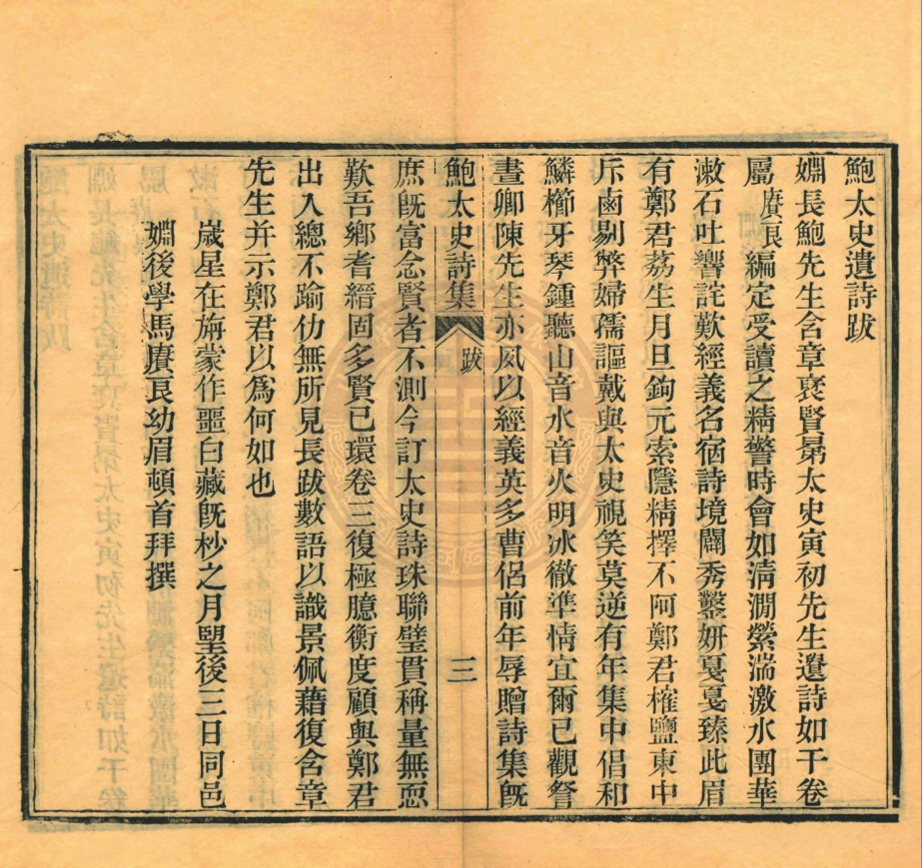 鮑太史遺詩跋
嫺長鮑先生含章裒賢昴太史寅初先生遺詩如干卷
屬賡良編定受讀之精警時會如淸澗縈湍激水團華
漱石吐響詫歎經義名宿詩境闢秀鑿姸戛戛臻此眉
有鄭君荔生月旦鉤元索隱精擇不阿鄭君榷鹽東中
斥鹵剔弊婦孺謳戴與太史視笑莫逆有年集中倡和
鱗櫛牙琴鍾聽山音水音火明冰徹準情宜爾已觀詧
晝卿陳先生亦夙以經義英多曹侶前年辱贈詩集旣
鮑太史詩集 跋 三
庶旣富念賢者不測今訂太史詩珠聯璧貫稱量無恧
歎吾鄕耆縉固多賢已環卷三復極臆衡度顧與鄭君
出入總不踰仂無所見長跋數語以識景佩藉復含章
先生并示鄭君以爲何如也
歲星在旃蒙作噩臼藏旣杪之月朢後三日同邑
嫺後學馬賡良幼眉頓首拜撰